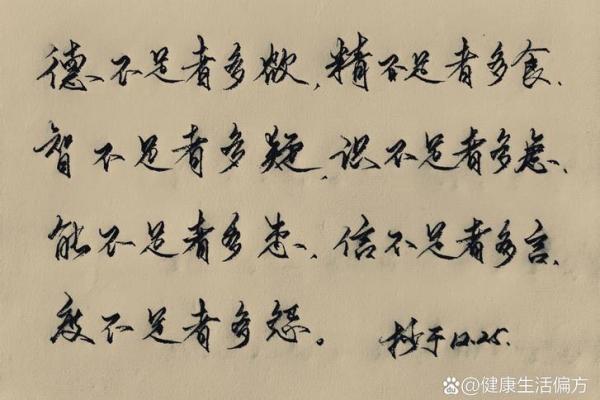 德不足者多欲,精不足者多食,
智不足者多疑,识不足者多虑,
能不足者多患,信不足者多言,
度不足者多怨。 抄于12.25.
@健康生活偏方